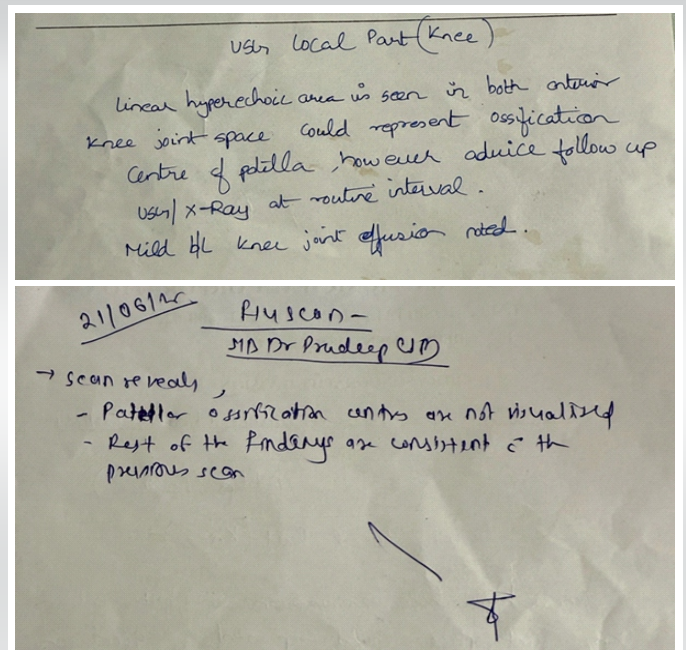 USG Local Part (Knee)
Linear hyperechoic area is seen in both anterior
Knee joint space could represent ossification
Centre of patella, however advice follow up
USG/ X-Ray at routine interval.
Mild b/L knee joint effusion noted.
21/06/25
F/U Scan -
Dr Pradeep
→ Scan reveals,
- Patellar ossification centres are not visualised
- Rest of the findings are consistent c̄ the
previous scan